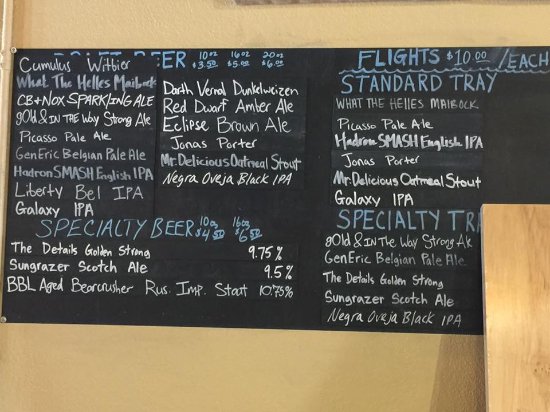 DRAFT BEER 10oz $3.50 16oz $5.00 20oz $6.00
Cumulus Witbier
What The Helles Maibock
CB+NOX SPARKLING ALE
gOld & IN THE WAy Strong Ale
Picasso Pale Ale
GenEric Belgian Pale Ale
Hadron SMASH English IPA
Liberty Bel IPA
Galaxy IPA
Darth Vernal Dunkelweizen
Red Dwarf Amber Ale
Eclipse Brown Ale
Jonas Porter
Mr. Delicious Oatmeal Stout
Negra Oveja Black IPA
SPECIALTY BEER 10oz $4.50 16oz $6.50
The Details Golden Strong 9.75%
Sungrazer Scotch Ale 9.5%
BBL Aged Bearcrusher Rus. Imp. Stout 10.75%
FLIGHTS $10.00 /EACH
STANDARD TRAY
WHAT THE HELLES MAIBOCK
Picasso Pale Ale
Hadron SMASH English IPA
Jonas Porter
Mr. Delicious Oatmeal Stout
Galaxy IPA
SPECIALTY TRA
gOld & IN THE WAy Strong Ale
GenEric Belgian Pale Ale
The Details Golden Strong
Sungrazer Scotch Ale
Negra Oveja Black IPA